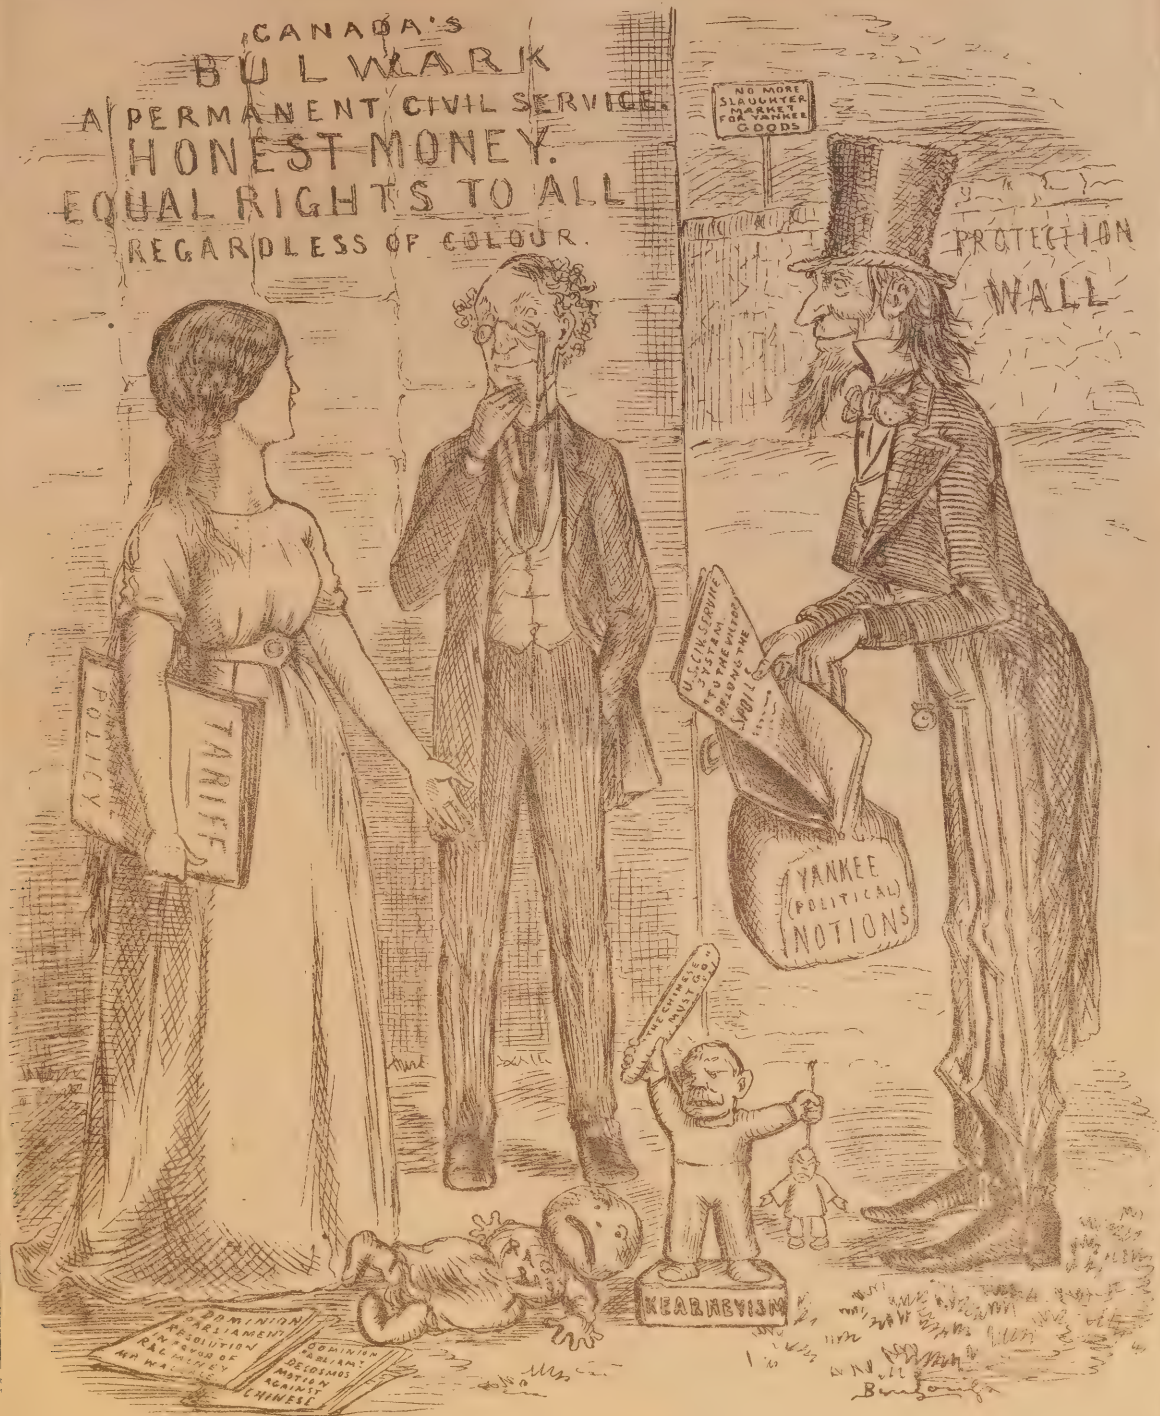 CANADA'S
BULWARK
A PERMANENT CIVIL SERVICE.
HONEST MONEY.
EQUAL RIGHTS TO ALL
REGARDLESS OF COLOUR.
NO MORE
SLAUGHTER
MARKET
FOR YANKEE
GOODS
PROTECTION
WALL
POLICY
TARIFF
U.S. CIV. SERVICE
SYSTAM.
"TO THE VICTORS
BELONG THE
SPOILS"
YANKEE
(POLITICAL)
NOTIONS
"THE CHINESE
MUST GO."
KEARNEYISM
DOMINION
PARLIAMENT
RESOLUTION
IN FAVOR OF
RAG MONEY
MR WALLACE
DOMINION
PARLIAMT
DECOSMOS
MOTION
AGAINST
CHINESE
Bengough